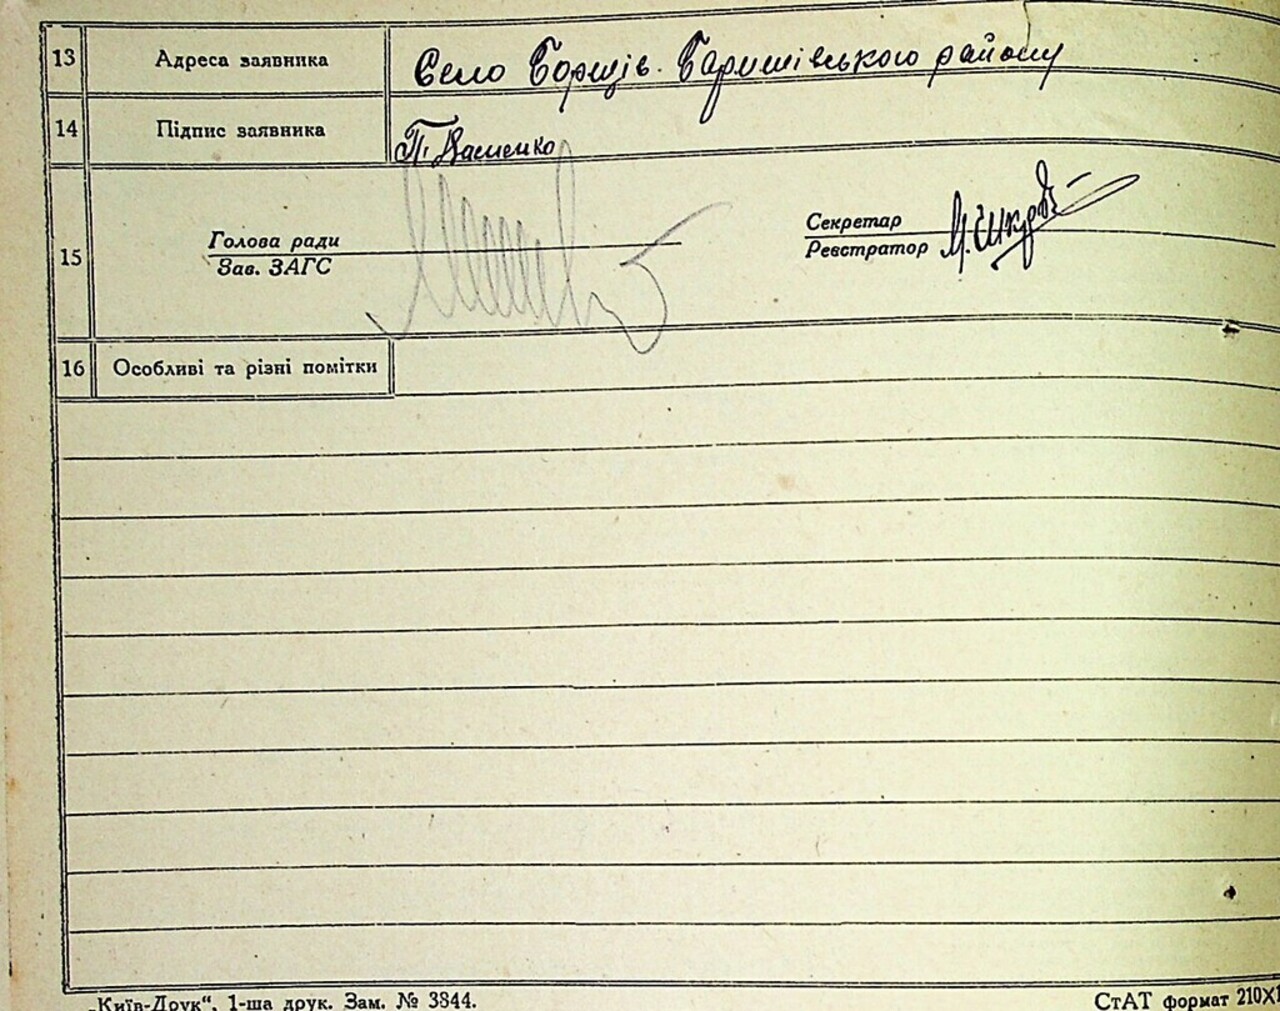 13 Адреса заявника Село Борщів. Баришівського району
14 Підпис заявника П.
15 Голова ради Секретар
Зав. ЗАГС Реєстратор
16 Особливі та різні помітки
„Київ-Друк“, 1-ша друк. Зам. № 3844. СтАТ формат 210X1